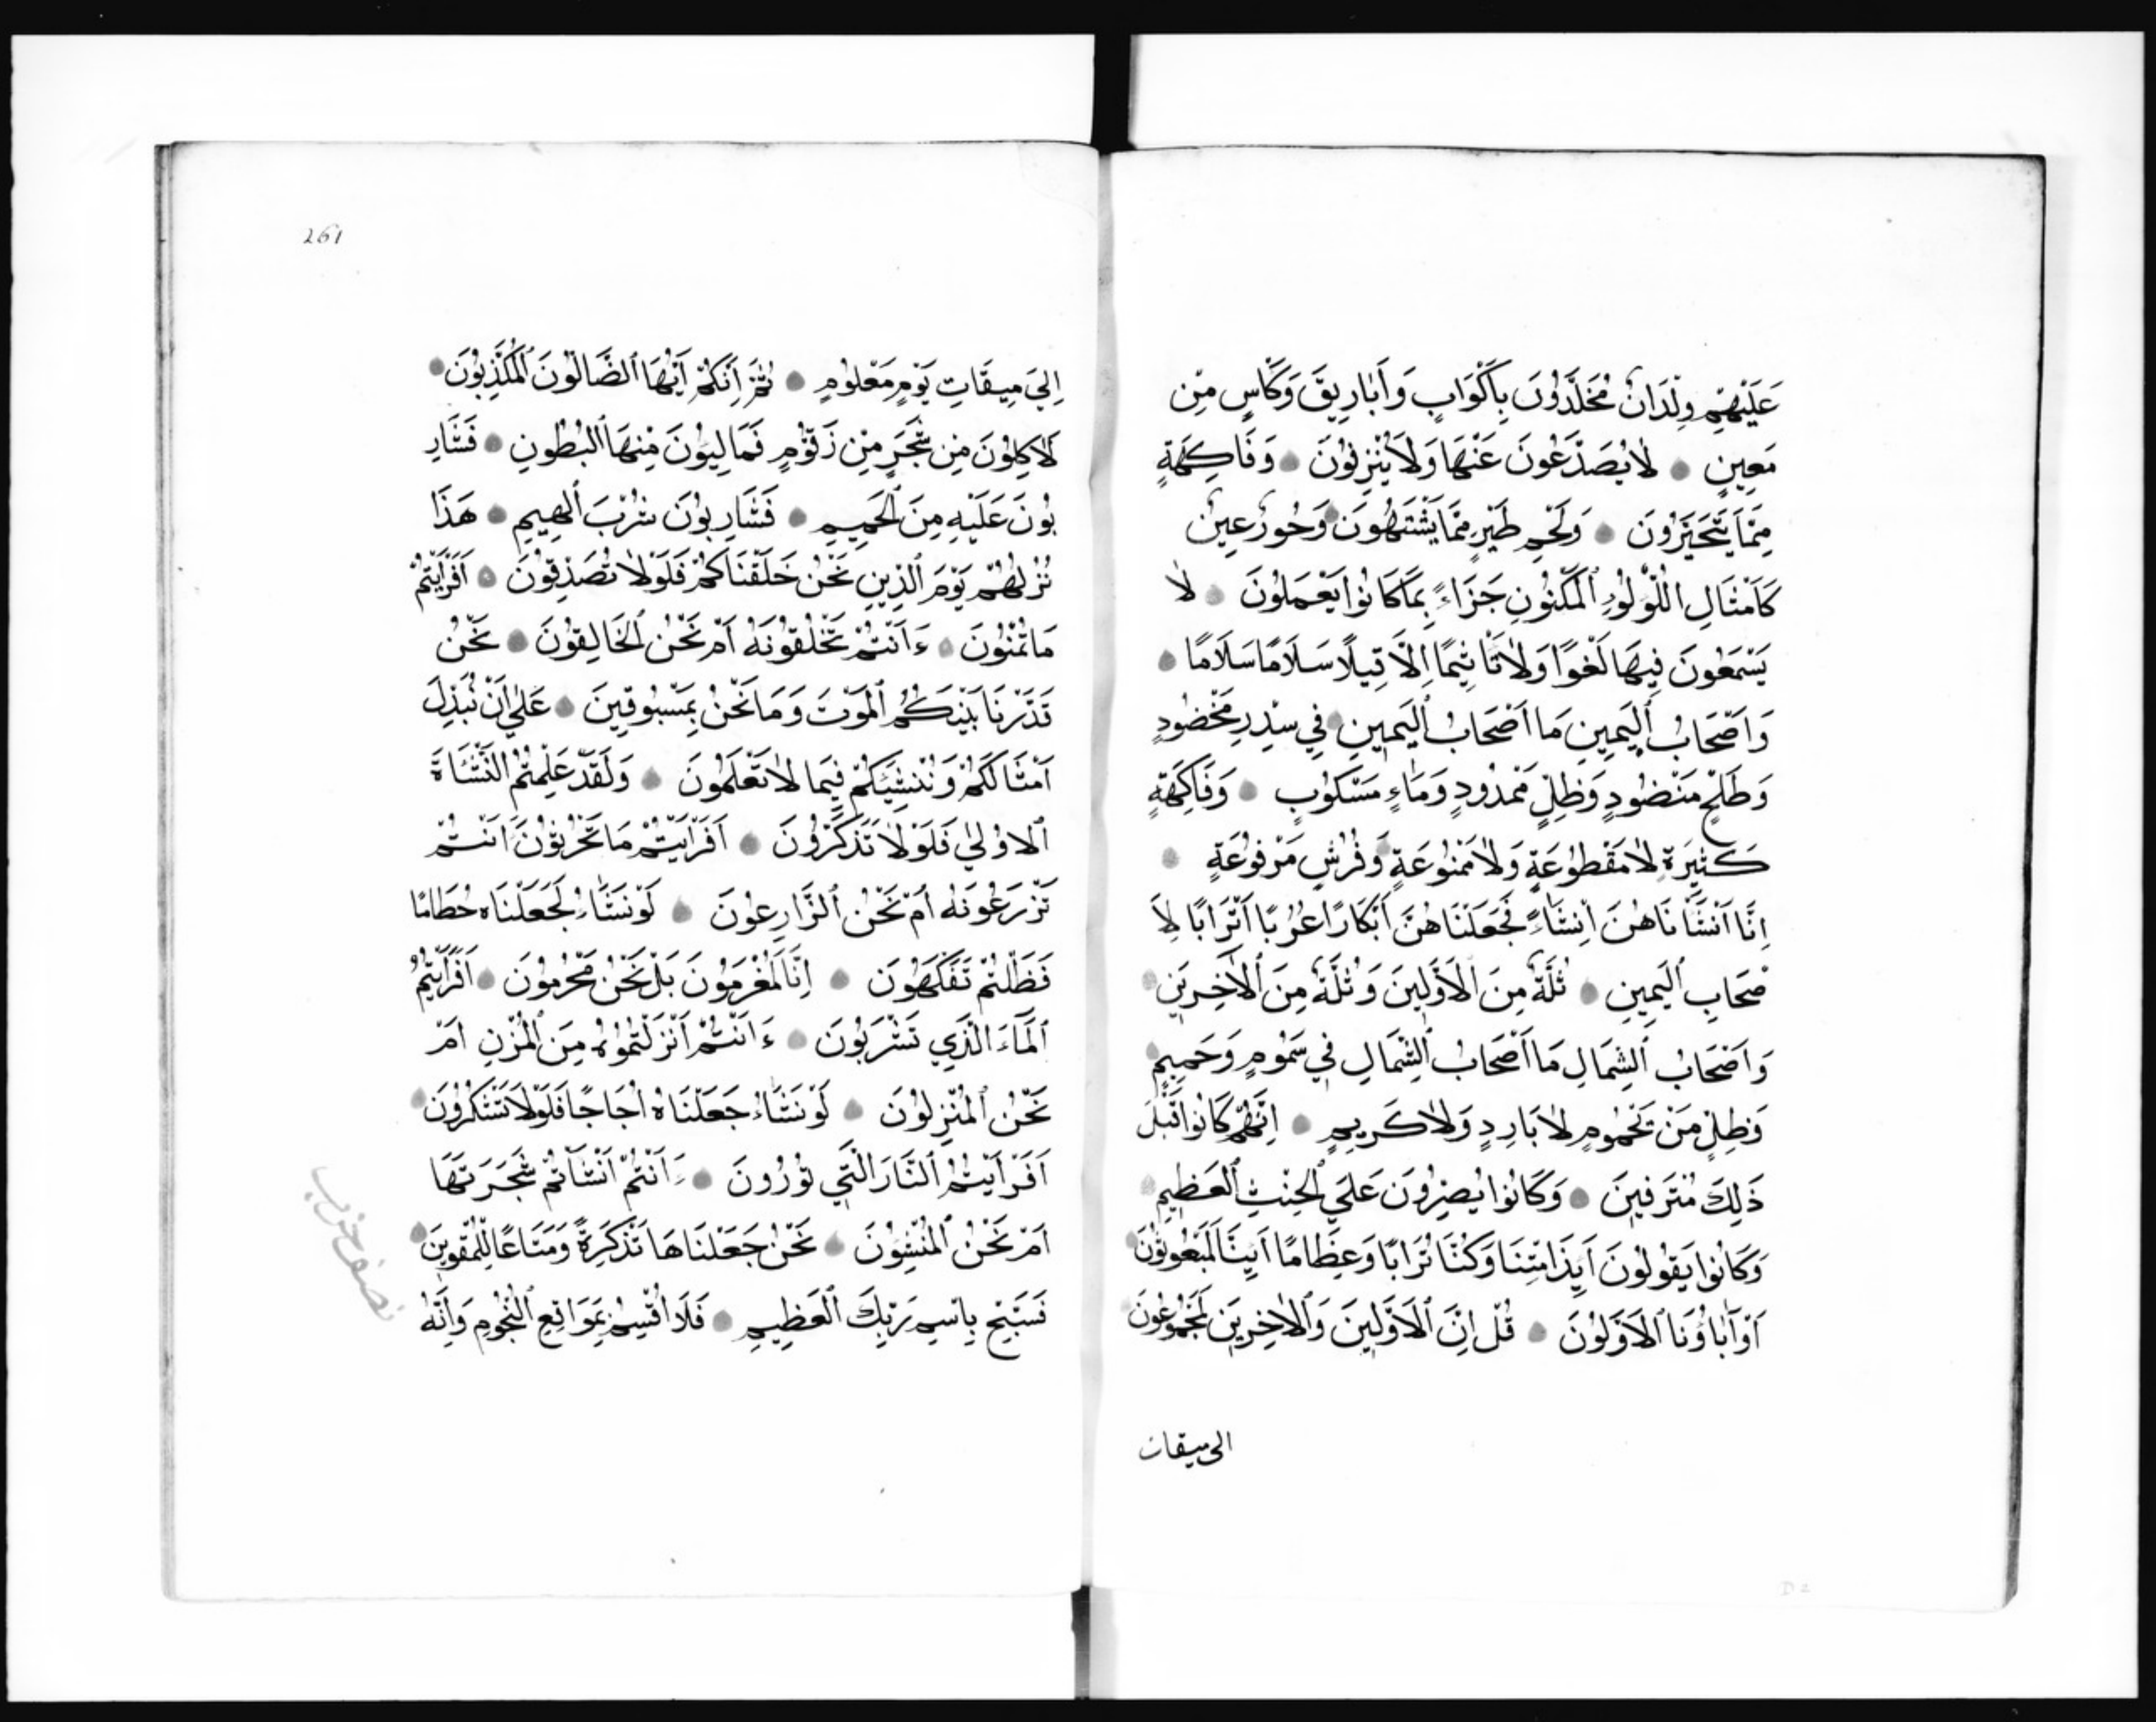 عَلَيْهِمْ وِلْدَانٌ مُخَلَّدُونَ بِأَكْوَابٍ وَأَبَارِيقَ وَكَأْسٍ مِنْ
مَعِينٍ لَا يُصَدَّعُونَ عَنْهَا وَلَا يُنْزِفُونَ وَفَاكِهَةٍ
مِمَّا يَتَخَيَّرُونَ وَلَحْمِ طَيْرٍ مِمَّا يَشْتَهُونَ وَحُورٌ عِينٌ
كَأَمْثَالِ اللُّؤْلُؤِ الْمَكْنُونِ جَزَاءً بِمَا كَانُوا يَعْمَلُونَ لَا
يَسْمَعُونَ فِيهَا لَغْوًا وَلَا تَأْثِيمًا إِلَّا قِيلًا سَلَامًا سَلَامًا
وَأَصْحَابُ الْيَمِينِ مَا أَصْحَابُ الْيَمِينِ فِي سِدْرٍ مَخْضُودٍ
وَطَلْحٍ مَنْضُودٍ وَظِلٍّ مَمْدُودٍ وَمَاءٍ مَسْكُوبٍ وَفَاكِهَةٍ
كَثِيرَةٍ لَا مَقْطُوعَةٍ وَلَا مَمْنُوعَةٍ وَفُرُشٍ مَرْفُوعَةٍ
إِنَّا أَنْشَأْنَاهُنَّ إِنْشَاءً فَجَعَلْنَاهُنَّ أَبْكَارًا عُرُبًا أَتْرَابًا لِأَ
صْحَابِ الْيَمِينِ ثُلَّةٌ مِنَ الْأَوَّلِينَ وَثُلَّةٌ مِنَ الْآخِرِينَ
وَأَصْحَابُ الشِّمَالِ مَا أَصْحَابُ الشِّمَالِ فِي سَمُومٍ وَحَمِيمٍ
وَظِلٍّ مِنْ يَحْمُومٍ لَا بَارِدٍ وَلَا كَرِيمٍ إِنَّهُمْ كَانُوا قَبْلَ
ذَلِكَ مُتْرَفِينَ وَكَانُوا يُصِرُّونَ عَلَى الْحِنْثِ الْعَظِيمِ
وَكَانُوا يَقُولُونَ أَيِذَا مِتْنَا وَكُنَّا تُرَابًا وَعِظَامًا أَيِنَّا لَمَبْعُوثُونَ
أَوَآبَاؤُنَا الْأَوَّلُونَ قُلْ إِنَّ الْأَوَّلِينَ وَالْآخِرِينَ لَمَجْمُوعُونَ
الى ميقات
261
إِلَى مِيقَاتِ يَوْمٍ مَعْلُومٍ ثُمَّ إِنَّكُمْ أَيُّهَا الضَّالُّونَ الْمُكَذِّبُونَ
لَآكِلُونَ مِنْ شَجَرٍ مِنْ زَقُّومٍ فَمَالِيُونَ مِنْهَا الْبُطُونِ فَشَارِ
بُونَ عَلَيْهِ مِنَ الْحَمِيمِ فَشَارِبُونَ شُرْبَ الْهِيمِ هَذَا
نُزُلُهُمْ يَوْمَ الدِّينِ نَحْنُ خَلَقْنَاكُمْ فَلَوْلَا تُصَدِّقُونَ أَفَرَأَيْتُمْ
مَا تُمْنُونَ ءَأَنْتُمْ تَخْلُقُونَهُ أَمْ نَحْنُ الْخَالِقُونَ نَحْنُ
قَدَّرْنَا بَيْنَكُمُ الْمَوْتَ وَمَا نَحْنُ بِمَسْبُوقِينَ عَلَى أَنْ نُبَدِّلَ
أَمْثَالَكُمْ وَنُنْشِئَكُمْ فِيمَا لَا تَعْلَمُونَ وَلَقَدْ عَلِمْتُمُ النَّشْأَةَ
الْأُولَى فَلَوْلَا تَذَكَّرُونَ أَفَرَأَيْتُمْ مَا تَحْرُثُونَ ءَأَنْتُمْ
تَزْرَعُونَهُ أَمْ نَحْنُ الزَّارِعُونَ لَوْ نَشَاءُ لَجَعَلْنَاهُ حُطَامًا
فَظَلْتُمْ تَفَكَّهُونَ إِنَّا لَمُغْرَمُونَ بَلْ نَحْنُ مَحْرُومُونَ أَفَرَأَيْتُمُ
الْمَاءَ الَّذِي تَشْرَبُونَ ءَأَنْتُمْ أَنْزَلْتُمُوهُ مِنَ الْمُزْنِ أَمْ
نَحْنُ الْمُنْزِلُونَ لَوْ نَشَاءُ جَعَلْنَاهُ أُجَاجًا فَلَوْلَا تَشْكُرُونَ
أَفَرَأَيْتُمُ النَّارَ الَّتِي تُورُونَ ءَأَنْتُمْ أَنْشَأْتُمْ شَجَرَتَهَا
أَمْ نَحْنُ الْمُنْشِئُونَ نَحْنُ جَعَلْنَاهَا تَذْكِرَةً وَمَتَاعًا لِلْمُقْوِينَ
فَسَبِّحْ بِاسْمِ رَبِّكَ الْعَظِيمِ فَلَا أُقْسِمُ بِمَوَاقِعِ النُّجُومِ وَإِنَّهُ
نصف حزب